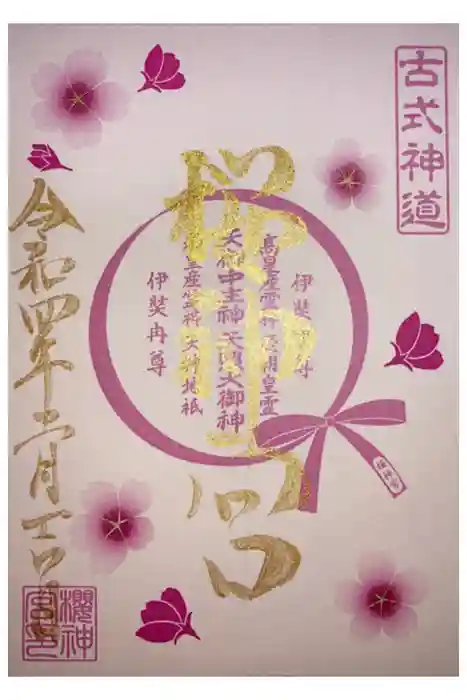 古式神道
伊奘諾尊
高皇産霊神 歴朝皇霊
天御中主神 天照大御神
神皇産霊神 天神地祇
伊奘冉尊
櫻神宮
桜神宮
令和四年二月吉日
櫻神
宮印